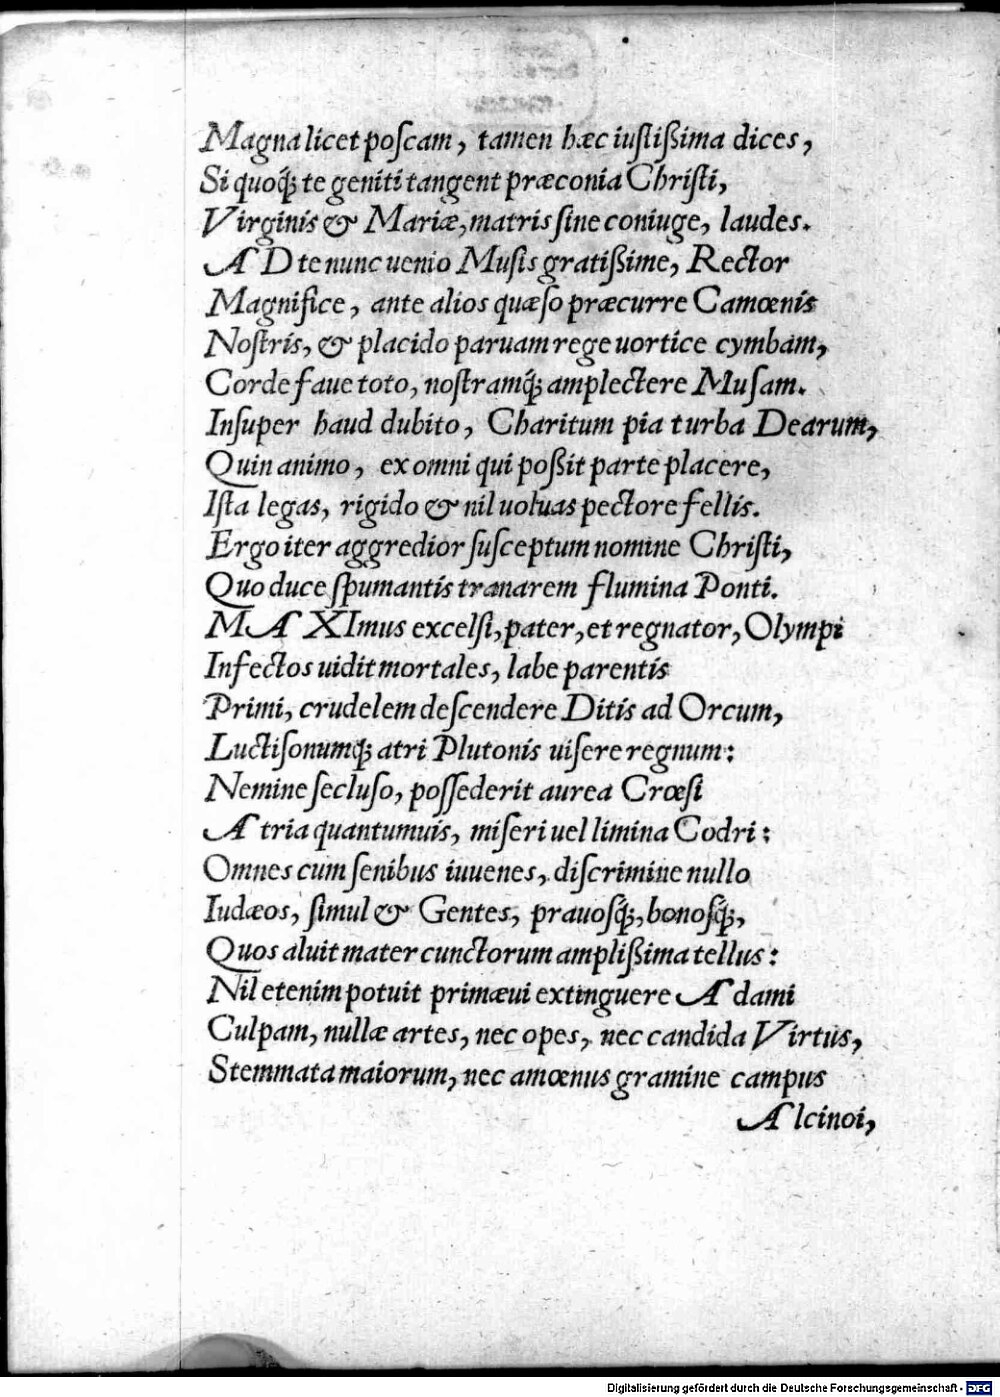 Magna licet poſcam, tamen hæc iuſtißima dices,
Si quoq́; te geniti tangent præconia Chriſti,
Virginis & Mariæ, matris ſine coniuge, laudes.
AD te nunc uenio Muſis gratißime, Rector
Magnifice, ante alios quæſo præcurre Camœnis
Noſtris, & placido paruam rege uortice cymbam,
Corde faue toto, noſtramq́; amplectere Muſam.
Inſuper haud dubito, Charitum pia turba Dearum,
Quin animo, ex omni qui poßit parte placere,
Iſta legas, rigido & nil uoluas pectore fellis.
Ergo iter aggredior ſuſceptum nomine Chriſti,
Quo duce ſpumantis tranarem flumina Ponti.
MAXImus excelſi, pater, et regnator, Olympi
Infectos uidit mortales, labe parentis
Primi, crudelem deſcendere Ditis ad Orcum,
Luctiſonumq́; atri Plutonis uiſere regnum:
Nemine ſecluſo, poſſederit aurea Crœſi
Atria quantumuis, miſeri uel limina Codri:
Omnes cum ſenibus iuuenes, diſcrimine nullo
Iudæos, ſimul & Gentes, prauoſq́;, bonoſq́;,
Quos aluit mater cunctorum amplißima tellus:
Nil etenim potuit primæui extinguere Adami
Culpam, nullæ artes, nec opes, nec candida Virtus,
Stemmata maiorum, nec amœnus gramine campus
Alcinoi,
Digitalisierung gefördert durch die Deutsche Forschungsgemeinschaft - DFG